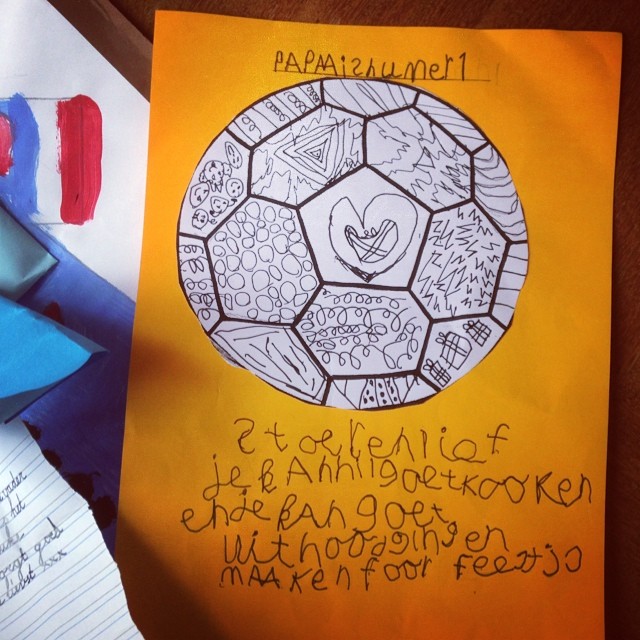 PAPA is numer 1
Stoer en lief
je kAn hiil goet kooken
en je kAn goet
uitnoodgingen
mAAken foor feestjo
goed
xxx